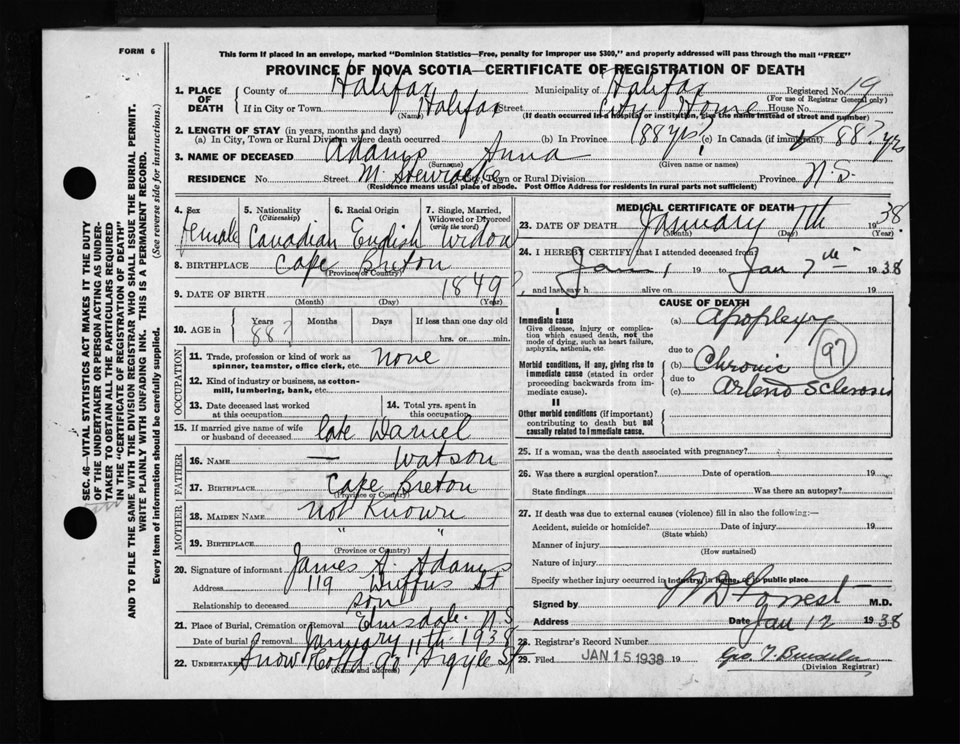 FORM 6
This form if placed in an envelope, marked "Dominion Statistics—Free, penalty for improper use $300," and properly addressed will pass through the mail "FREE"
PROVINCE OF NOVA SCOTIA—CERTIFICATE OF REGISTRATION OF DEATH
1. PLACE OF DEATH County of Halifax Municipality of Halifax Registered No. 19
(For use of Registrar General only)
If in City or Town Halifax Street City Home House No.
(Name) (If death occurred in a hospital or institution, give the name instead of street and number)
2. LENGTH OF STAY (in years, months and days)
(a) In City, Town or Rural Division where death occurred (b) In Province (88 yrs? (c) In Canada (if immigrant) 88? yrs
3. NAME OF DECEASED Adams Anna
(Surname) (Given name or names)
RESIDENCE No. Street M. Stewiacke City, Town or Rural Division Province N.S.
(Residence means usual place of abode. Post Office Address for residents in rural parts not sufficient)
4. Sex Female
5. Nationality (Citizenship) Canadian
6. Racial Origin English
7. Single, Married, Widowed or Divorced (write the word) Widow
8. BIRTHPLACE Cape Breton
(Province or Country)
9. DATE OF BIRTH 1849?
(Month) (Day) (Year)
10. AGE in Years Months Days If less than one day old
88? hrs. or min.
OCCUPATION
11. Trade, profession or kind of work as spinner, teamster, office clerk, etc. None
12. Kind of industry or business, as cotton-mill, lumbering, bank, etc.
13. Date deceased last worked at this occupation
14. Total yrs. spent in this occupation
15. If married give name of wife or husband of deceased late Daniel
FATHER
16. NAME — Watson
17. BIRTHPLACE Cape Breton
(Province or Country)
MOTHER
18. MAIDEN NAME Not Known
19. BIRTHPLACE " "
(Province or Country)
20. Signature of informant James A. Adams
Address 119 Duffus St
Relationship to deceased son
21. Place of Burial, Cremation or Removal Elmsdale. N.S
Date of burial or removal January 11th. 1938
22. Undertaker Snow Co Ltd 90 Argyle St
(Name and address)
MEDICAL CERTIFICATE OF DEATH
23. DATE OF DEATH January 7th 1938
(Month) (Day) (Year)
24. I HEREBY CERTIFY that I attended deceased from
Jan 1 19 to Jan 7th 1938
and last saw h alive on 19
CAUSE OF DEATH
I
Immediate cause
Give disease, injury or complication which caused death, not the mode of dying, such as heart failure, asphyxia, asthenia, etc.
(a) Apoplexy
due to
Morbid conditions, if any, giving rise to immediate cause (stated in order proceeding backwards from immediate cause).
(b) Chronic
due to
(c) Arterio Sclerosis
97
II
Other morbid conditions (if important) contributing to death but not causally related to immediate cause.
25. If a woman, was the death associated with pregnancy?
26. Was there a surgical operation? Date of operation 19
State findings Was there an autopsy?
27. If death was due to external causes (violence) fill in also the following:—
Accident, suicide or homicide? Date of injury 19
(State which)
Manner of injury
(How sustained)
Nature of injury
Specify whether injury occurred in industry, in home, or in public place
Signed by Forrest M.D.
Address Date Jan 12 1938
28. Registrar's Record Number
29. Filed JAN 15 1938 19
(Division Registrar)
SEC. 46—VITAL STATISTICS ACT MAKES IT THE DUTY
OF THE UNDERTAKER OR PERSON ACTING AS UNDER-
TAKER TO OBTAIN ALL THE PARTICULARS REQUIRED
IN THE "CERTIFICATE OF REGISTRATION OF DEATH"
AND TO FILE THE SAME WITH THE DIVISION REGISTRAR WHO SHALL ISSUE THE BURIAL PERMIT.
WRITE PLAINLY WITH UNFADING INK. THIS IS A PERMANENT RECORD.
Every item of information should be carefully supplied. (See reverse side for instructions.)